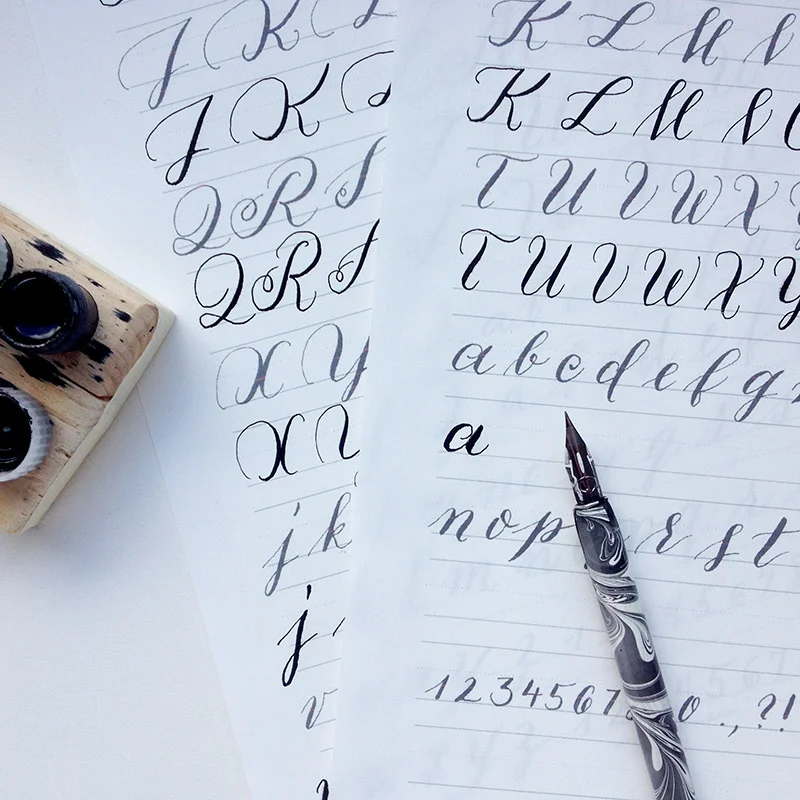 J K L
J K
Q R S
Q R S
X Y
X Y
j k
j
v
K L M N
K L M N
T U V W X Y
T U V W X Y
a b c d e f g
a
n o p r s t
1 2 3 4 5 6 7 0 . , ? !